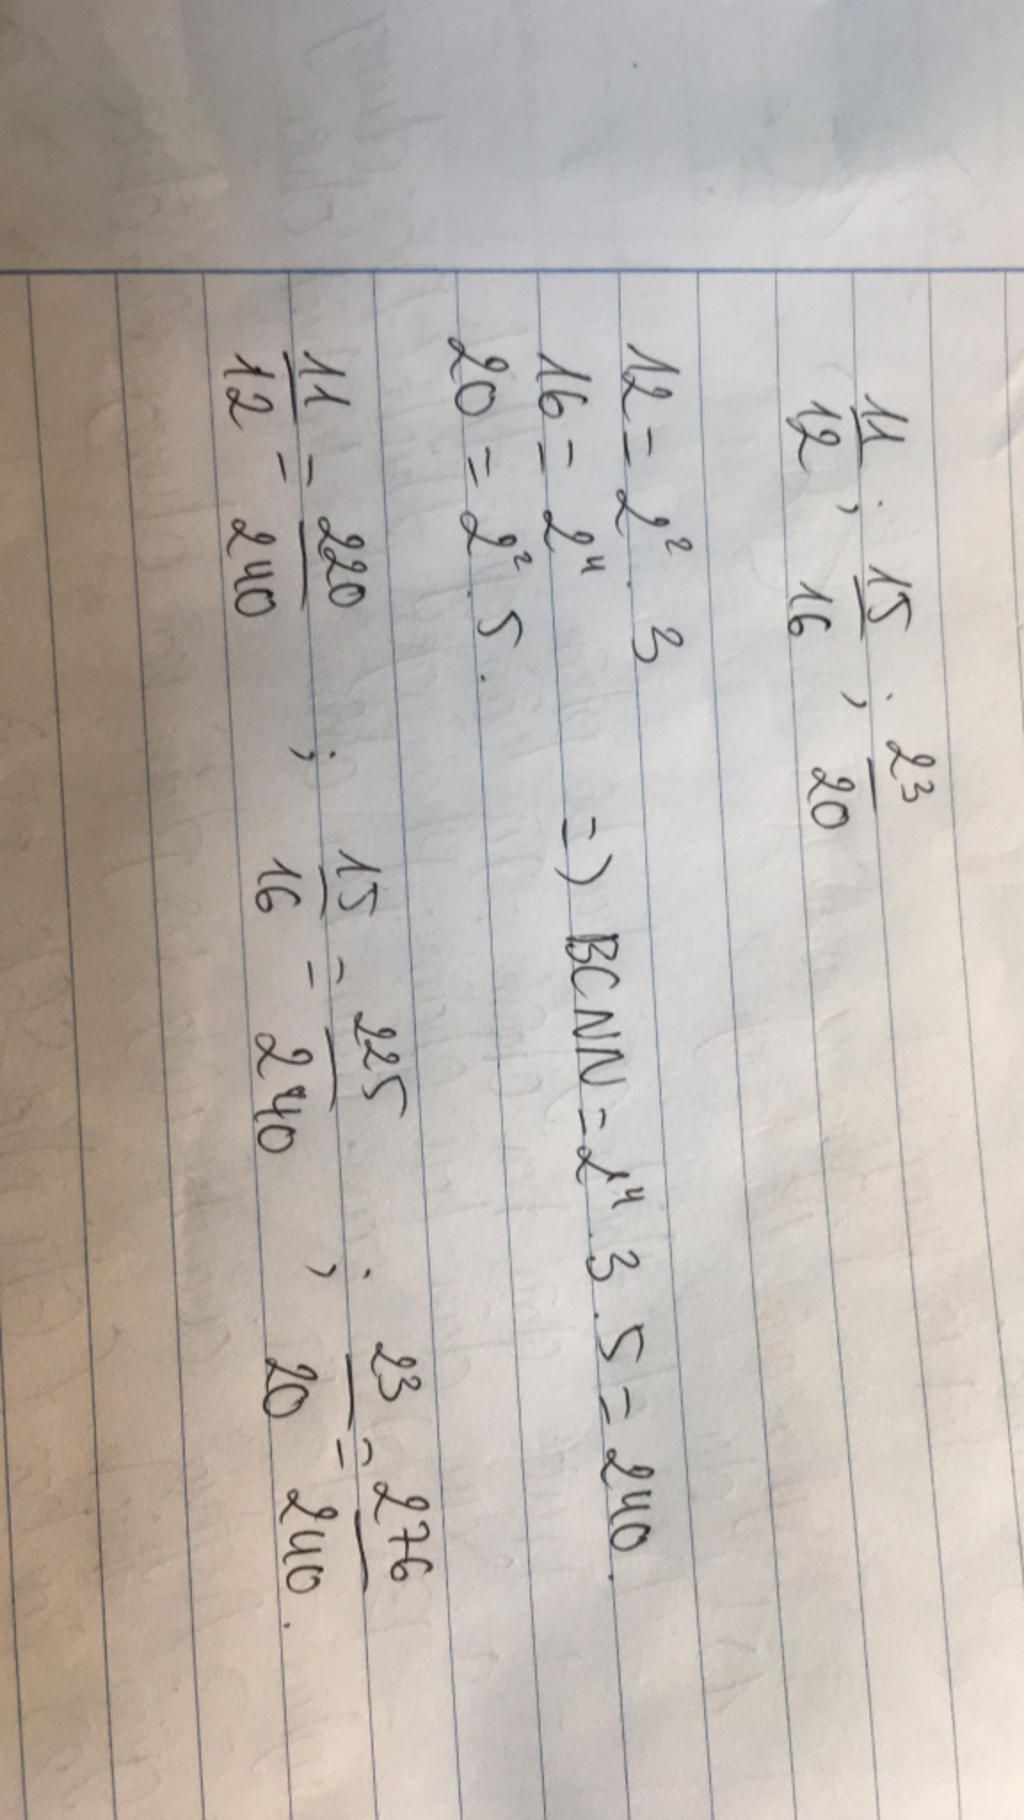 11/12 ; 15/16 ; 23/20
12 = 2² . 3
16 = 2⁴ => BCNN = 2⁴ . 3 . 5 = 240.
20 = 2² . 5.
11/12 = 220/240 ; 15/16 = 225/240 ; 23/20 = 276/240.